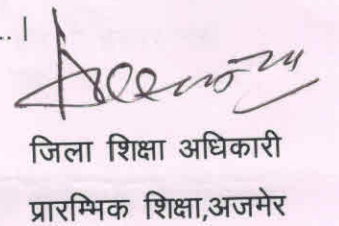 .. ।
जिला शिक्षा अधिकारी
प्रारम्भिक शिक्षा,अजमेर